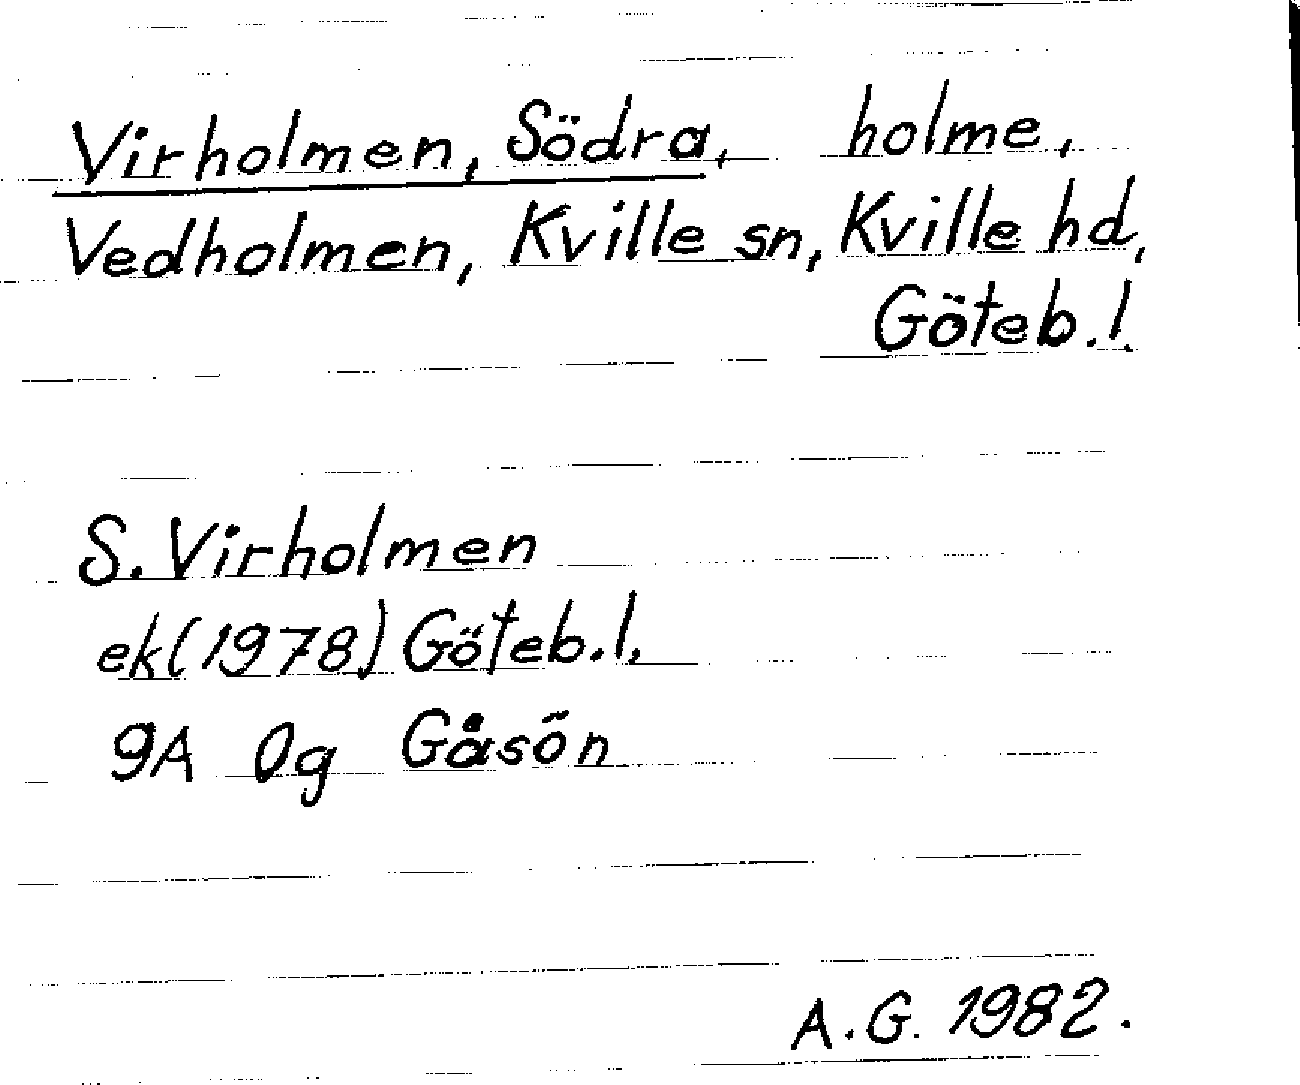 Virholmen, Södra, holme,
Vedholmen, Kville sn, Kville hd,
Göteb. l.
S. Virholmen
ek (1978) Göteb. l.
9A 0g Gåsön
A.G. 1982.